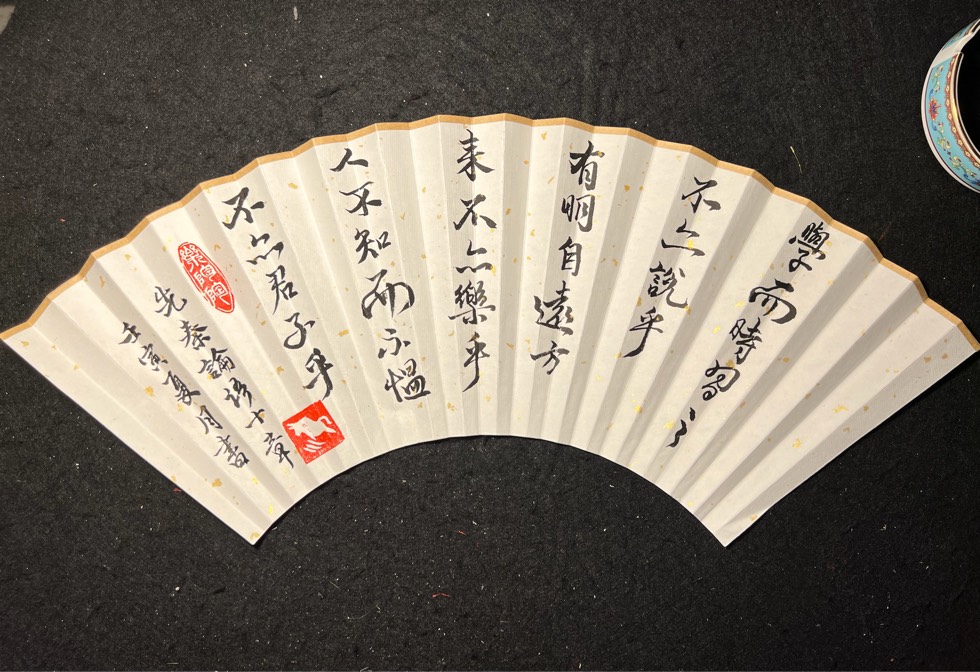 學而時習之
不亦說乎
有朋自遠方
來不亦樂乎
人不知而不慍
不亦君子乎
先秦論語十章
壬寅夏月書